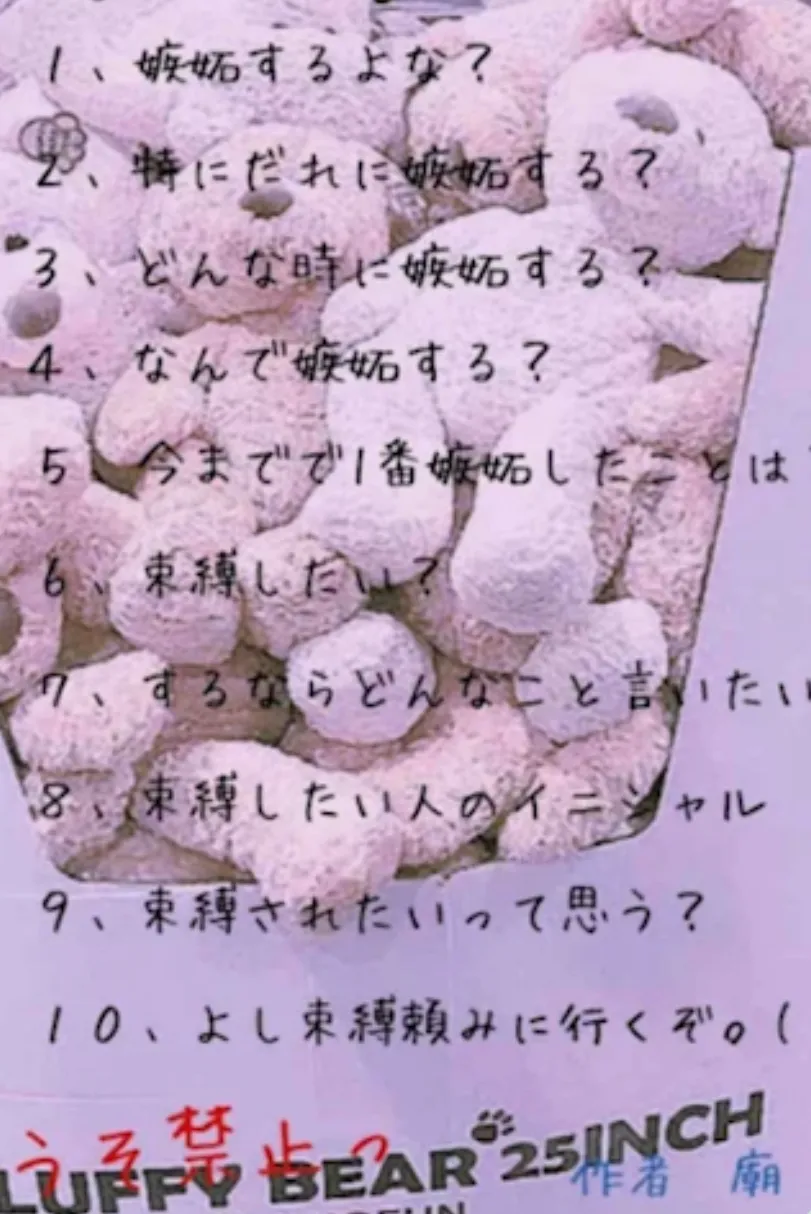 1、嫉妬するよな?
2、特にだれに嫉妬する?
3、どんな時に嫉妬する?
4、なんで嫉妬する?
5、今までで1番嫉妬したことは
6、束縛したい?
7、するならどんなこと言いたい
8、束縛したい人のイニシャル
9、束縛されたいって思う?
10、よし束縛頼みに行くぞ。(
うそ禁止っ
LUFFY BEAR 25INCH
作者 廟